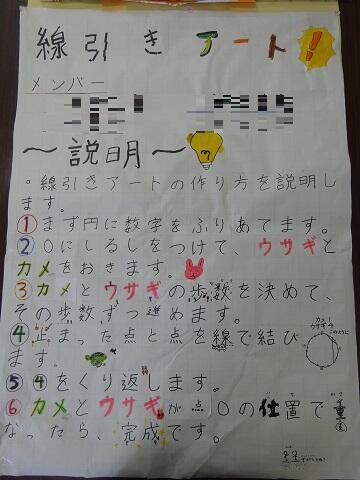 線引きアート!
メンバー
〜説明〜
。線引きアートの作り方を説明し
ます。
①まず円に数字をふりあてます。
②0にしるしをつけて、ウサギと
カメをおきます。
③カメとウサギの歩数を決めて、
その歩数ずつ進めます。
④止まった点と点を線で結び
ます。
カメ1
ウサギ4
このように
⑤④をくり返します。
⑥カメとウサギが点0の位置で重
なったら、完成です。